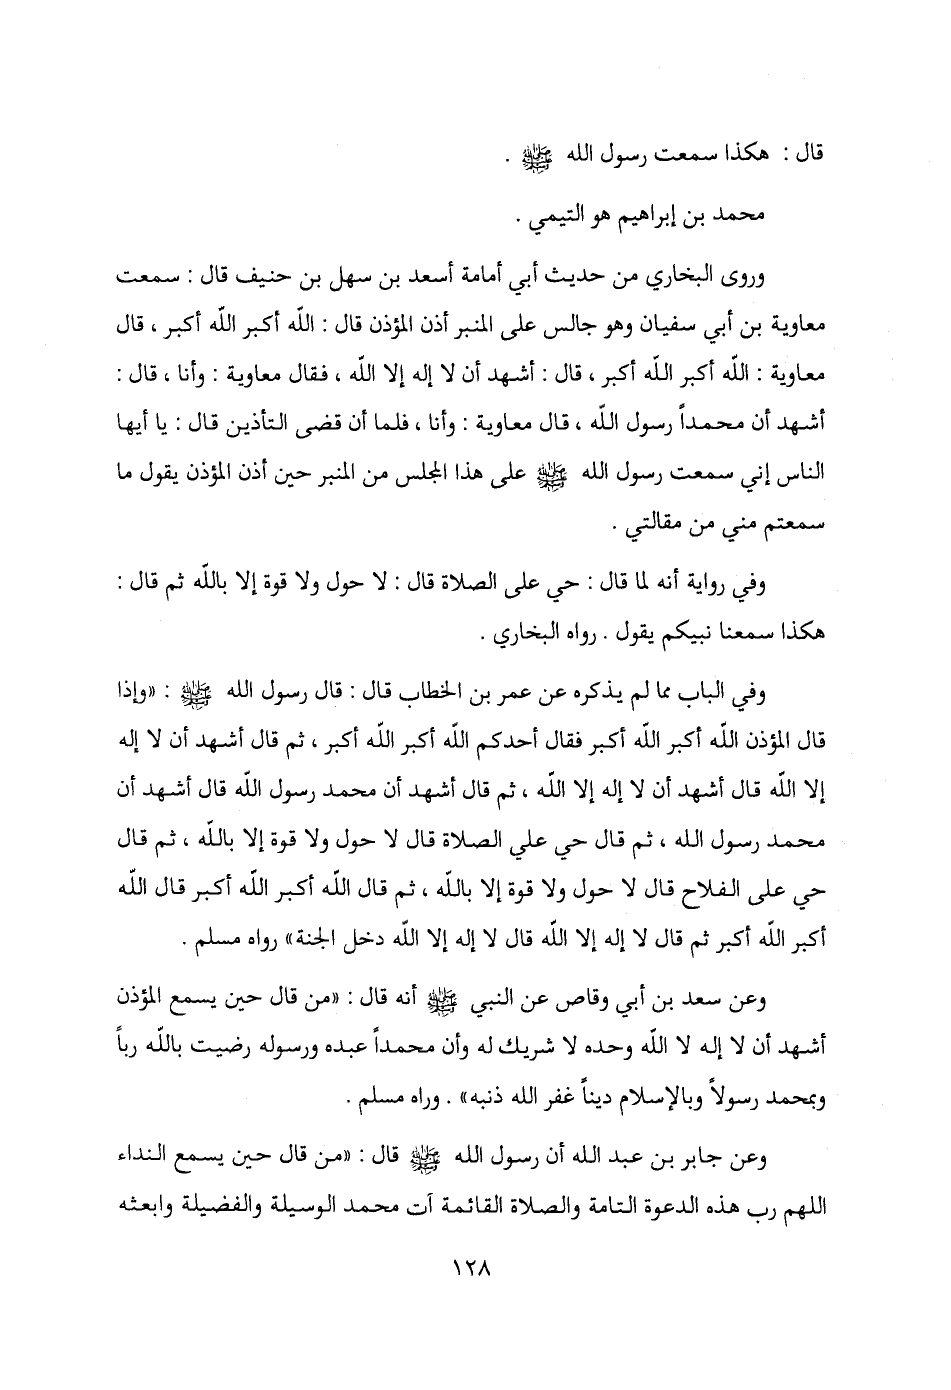 قال : هكذا سمعت رسول الله ﷺ .
محمد بن إبراهيم هو التيمي .
وروى البخاري من حديث أبي أمامة أسعد بن سهل بن حنيف قال : سمعت
معاوية بن أبي سفيان وهو جالس على المنبر أذن المؤذن قال : اللّه أكبر اللّه أكبر ، قال
معاوية : اللّه أكبر اللّه أكبر ، قال : أشهد أن لا إله إلا اللّه ، فقال معاوية : وأنا ، قال :
أشهد أن محمداً رسول اللّه ، قال معاوية : وأنا ، فلما أن قضى التأذين قال : يا أيها
الناس إني سمعت رسول الله ﷺ على هذا المجلس من المنبر حين أذن المؤذن يقول ما
سمعتم مني من مقالتي .
وفي رواية أنه لما قال : حي على الصلاة قال : لا حول ولا قوة إلا باللّه ثم قال :
هكذا سمعنا نبيكم يقول . رواه البخاري .
وفي الباب مما لم يذكره عن عمر بن الخطاب قال : قال رسول الله ﷺ : «وإذا
قال المؤذن اللّه أكبر اللّه أكبر فقال أحدكم اللّه أكبر اللّه أكبر ، ثم قال أشهد أن لا إله
إلا اللّه قال أشهد أن لا إله إلا اللّه ، ثم قال أشهد أن محمد رسول اللّه قال أشهد أن
محمد رسول الله ، ثم قال حي على الصلاة قال لا حول ولا قوة إلا باللّه ، ثم قال
حي على الفلاح قال لا حول ولا قوة إلا باللّه ، ثم قال اللّه أكبر اللّه أكبر قال اللّه
أكبر اللّه أكبر ثم قال لا إله إلا اللّه قال لا إله إلا اللّه دخل الجنة» رواه مسلم .
وعن سعد بن أبي وقاص عن النبي ﷺ أنه قال : «من قال حين يسمع المؤذن
أشهد أن لا إله لا اللّه وحده لا شريك له وأن محمداً عبده ورسوله رضيت باللّه رباً
وبمحمد رسولاً وبالإسلام ديناً غفر الله ذنبه» . وراه مسلم .
وعن جابر بن عبد الله أن رسول الله ﷺ قال : «من قال حين يسمع النداء
اللهم رب هذه الدعوة التامة والصلاة القائمة آت محمد الوسيلة والفضيلة وابعثه
١٢٨